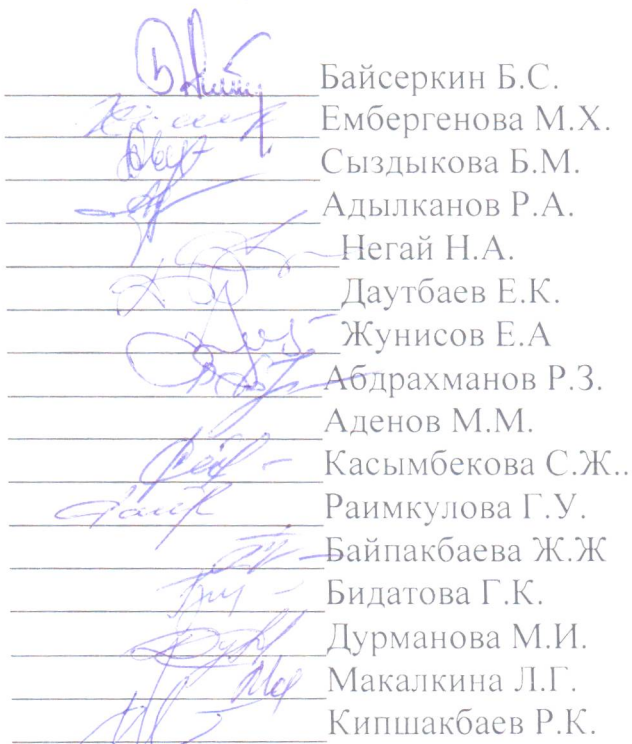 Байсеркин Б.С.
Ембергенова М.Х.
Сыздыкова Б.М.
Адылканов Р.А.
Негай Н.А.
Даутбаев Е.К.
Жунисов Е.А
Абдрахманов Р.З.
Аденов М.М.
Касымбекова С.Ж..
Раимкулова Г.У.
Байпакбаева Ж.Ж
Бидатова Г.К.
Дурманова М.И.
Макалкина Л.Г.
Кипшакбаев Р.К.